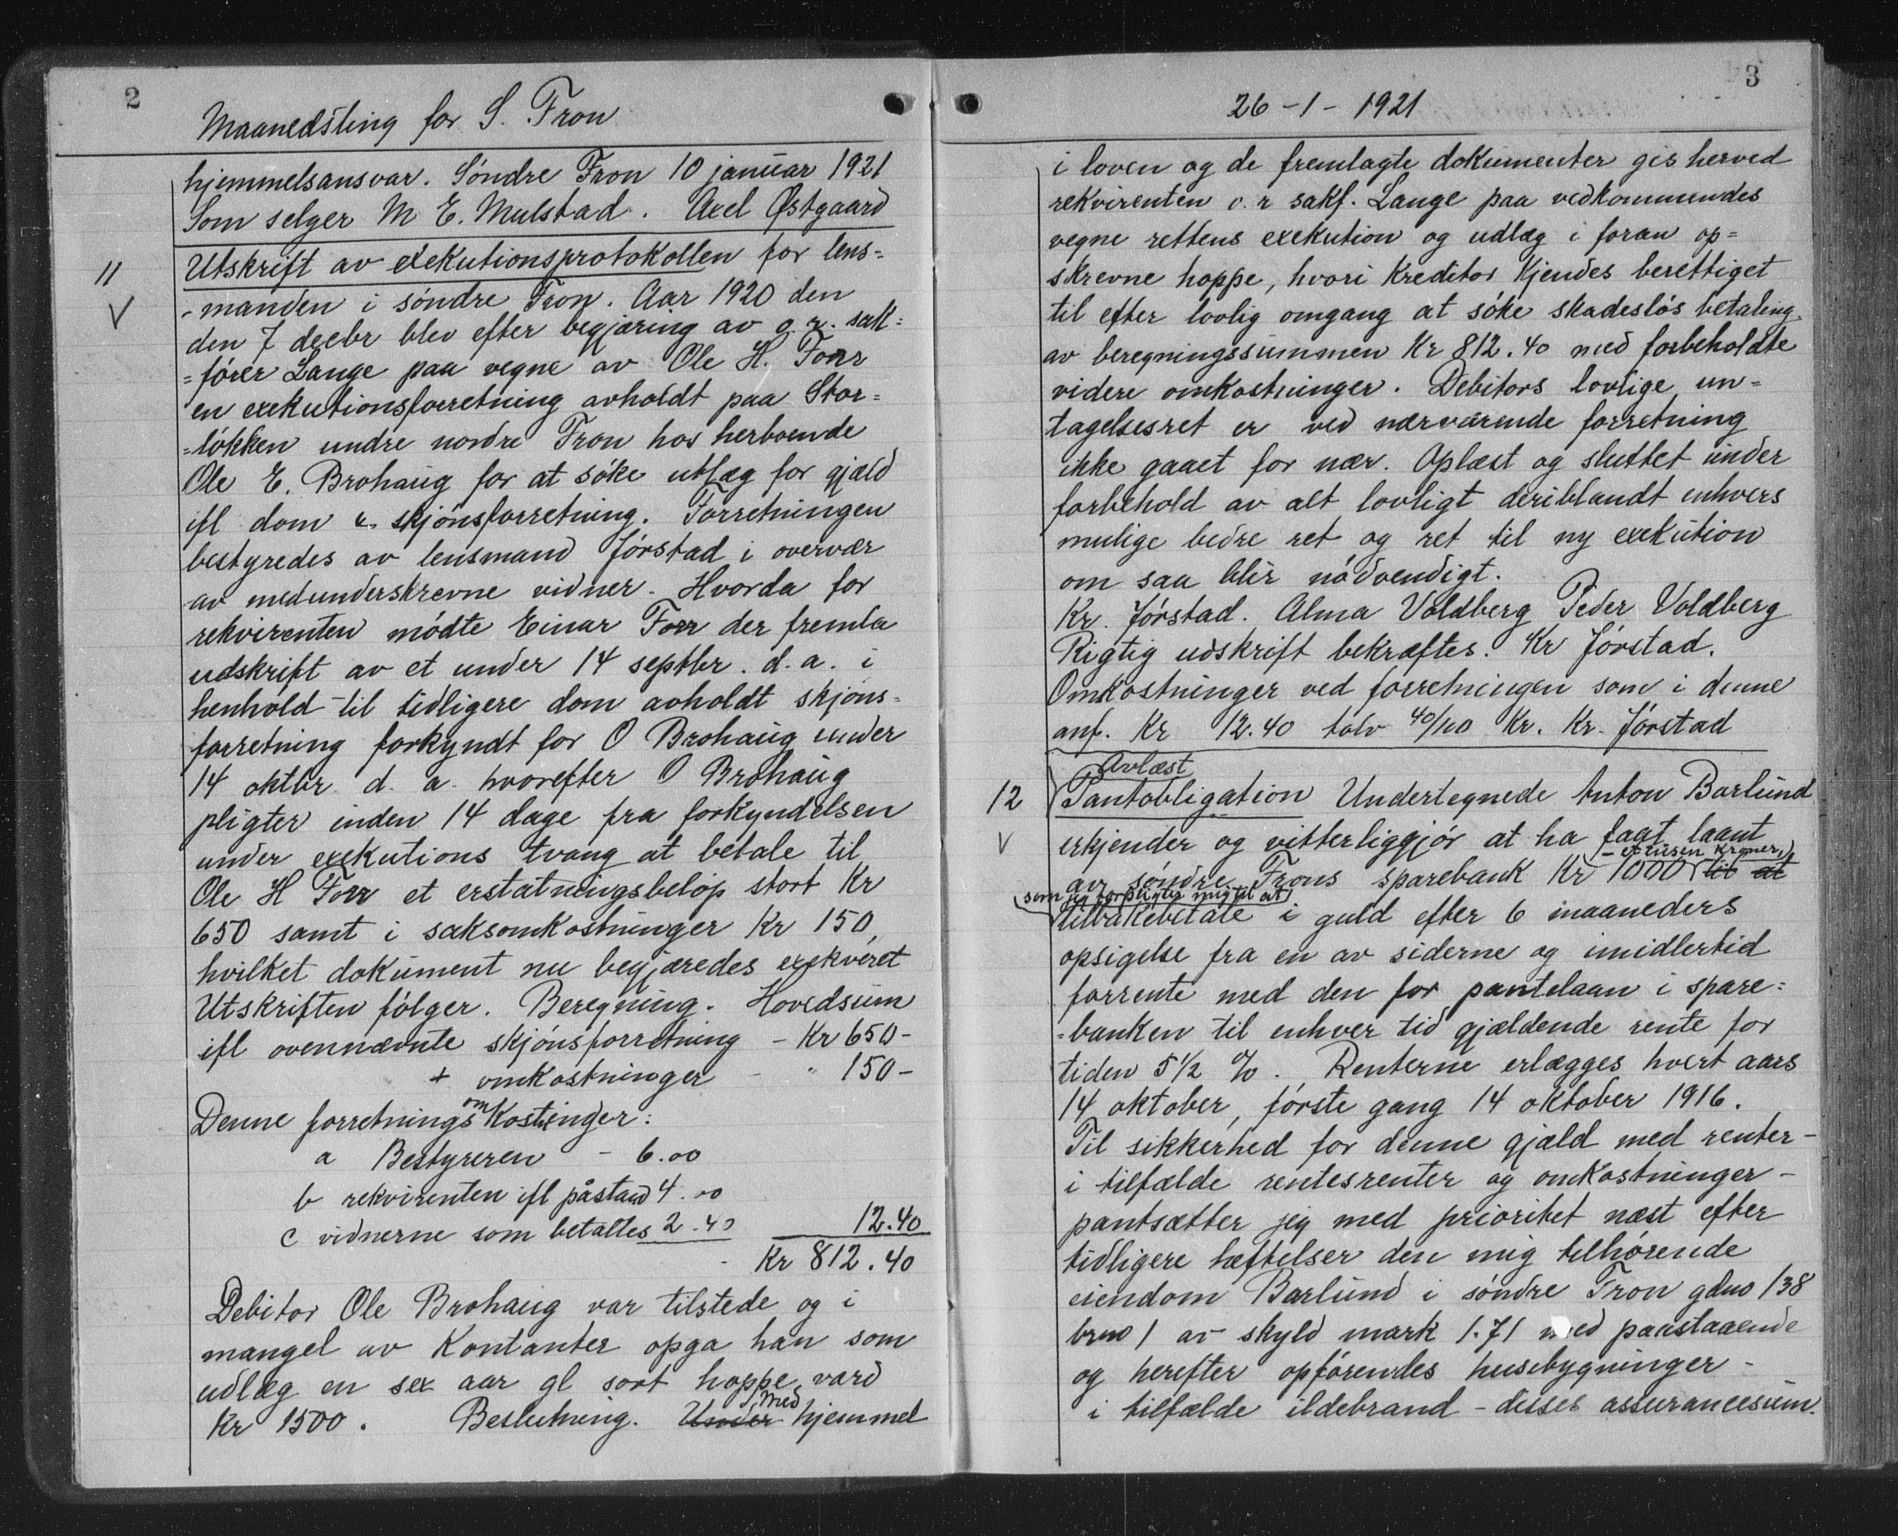 2
Maanedsting for S. Fron
hjemmelsansvar. Søndre Fron 10 januar 1921
Som selger M E. Mulstad. Axel Østgaard
11 Utskrift av exekutionsprotokollen for lens=
V -manden i søndre Fron. Aar 1920 den
den 7 decbr blev efter begjæring av o. r. sak=
=fører Lange paa vegne av Ole H. Forr
en exekutionsforretning avholdt paa Stor=
=løkken undre nordre Fron hos herboende
Ole E. Brohaug for at søke utlæg for gjæld
ifl dom & skjønsforretning. Forretningen
bestyredes av lensmand Jørstad i overvær
av medunderskrevne vidner. Hvorda for
rekvirenten mødte Einar Forr der fremla
udskrift av et under 14 septbr. d. a. i
henhold til tidligere dom avholdt skjøns=
forretning forkyndt for O Brohaug under
14 oktbr d. a. hvorefter O Brohaug
pligter inden 14 dage fra forkyndelsen
under exekutions tvang at betale til
Ole H Forr et erstatningsbeløp stort Kr
650 samt i saksomkostninger Kr 150,
hvilket dokument nu begjæredes exekveret
Utskriften følger. Beregning. Hovedsum
ifl ovennævnte skjønsforretning - Kr 650-
+ omkostninger - " 150-
Denne forretnings omkostninger:
a Bestyreren - 6.00
b rekvirenten ifl påstand 4.00
c vidnerne som betaltes 2.40 12.40
- Kr 812.40
Debitor Ole Brohaug var tilstede og i
mangel av Kontanter opga han som
udlæg en sex aar gl sort hoppe, værd
Kr 1500. Beslutning. Under Med hjemmel
3
26-1-1921
i loven og de fremlagte dokumenter gis herved
rekvirenten o. r sakf. Lange paa vedkommendes
vegne rettens exekution og udlæg i foran op=
skrevne hoppe, hvori Kreditor kjendes berettiget
til efter lovlig omgang at søke skadesløs betaling
av beregningssummen Kr 812.40 med forbeholdte
videre omkostninger. Debitors lovlige un=
tagelsesret er ved nærværende forretning
ikke gaaet for nær. Oplæst og sluttet under
forbehold av alt lovligt deriblandt enhvers
mulige bedre ret og ret til ny exekution
om saa blir nødvendigt.
Kr. Jørstad. Alma Voldberg Peder Voldberg
Rigtig udskrift bekræftes. Kr Jørstad.
Omkostninger ved forretningen som i denne
anf. Kr 12.40 tolv 40/100 Kr. Kr. Jørstad
Avlæst
12 Pantobligation Undertegnede Anton Barlund
V erkjender og vitterliggjør at ha faat laant
- et tusen kroner,
av søndre Frons sparebank Kr 1000 til at
som jeg forpligter mig til at
tilbakebetale i guld efter 6 maaneders
opsigelse fra en av siderne og imidlertid
forrente med den for pantelaan i spare=
=banken til enhver tid gjældende rente for
tiden 5 1/2 %. Renterne erlægges hvert aars
14 oktober, første gang 14 oktober 1916.
Til sikkerhed for denne gjæld med renter-
i tilfælde rentesrenter og omkostninger-
pantsætter jeg med prioritet næst efter
tidligere hæftelser den mig tilhørende
eiendom Barlund i søndre Fron gdno 138
brno 1 av skyld mark 1.71 med paastaaende
og herefter opførendes husebygninger-
i tilfælde ildebrand - disses assurancesum.